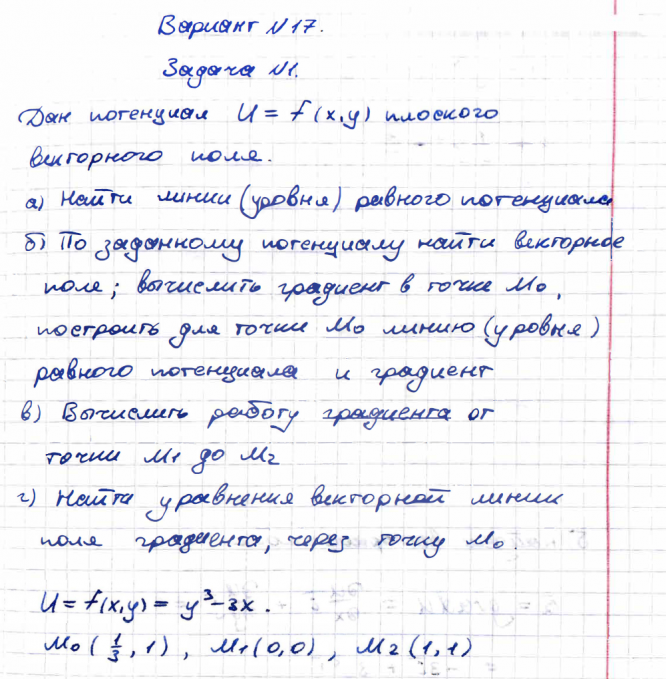 Вариант №17.
Задача №1.
Дан потенциал U = f(x,y) плоского
векторного поля.
а) Найти линии (уровня) равного потенциала
б) По заданному потенциалу найти векторное
поле; вычислить градиент в точке M₀,
построить для точки M₀ линию (уровня)
равного потенциала и градиент
в) Вычислить работу градиента от
точки M₁ до M₂
г) Найти уравнения векторной линии
поля градиента, через точку M₀.
U = f(x,y) = y³-3x.
M₀ (1/3, 1), M₁(0,0), M₂ (1,1)